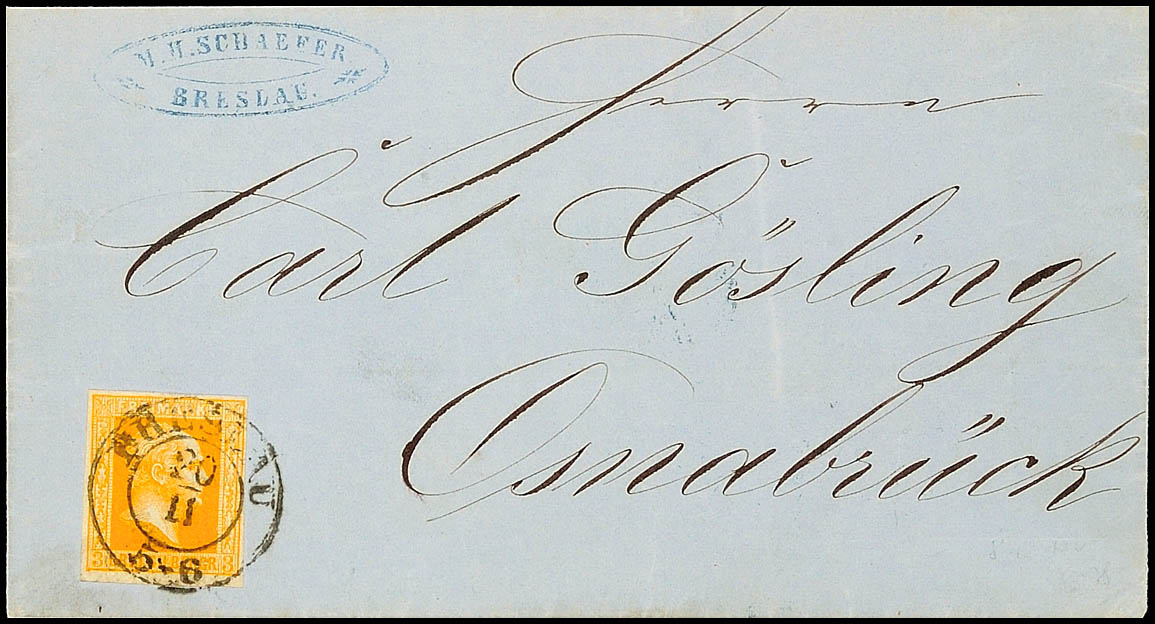 M. H. SCHAEFER
BRESLAU.
Herrn
Carl Gösling
Osnabrück
FREIMARKE
BRESLAU
20
11
5-6
3 3